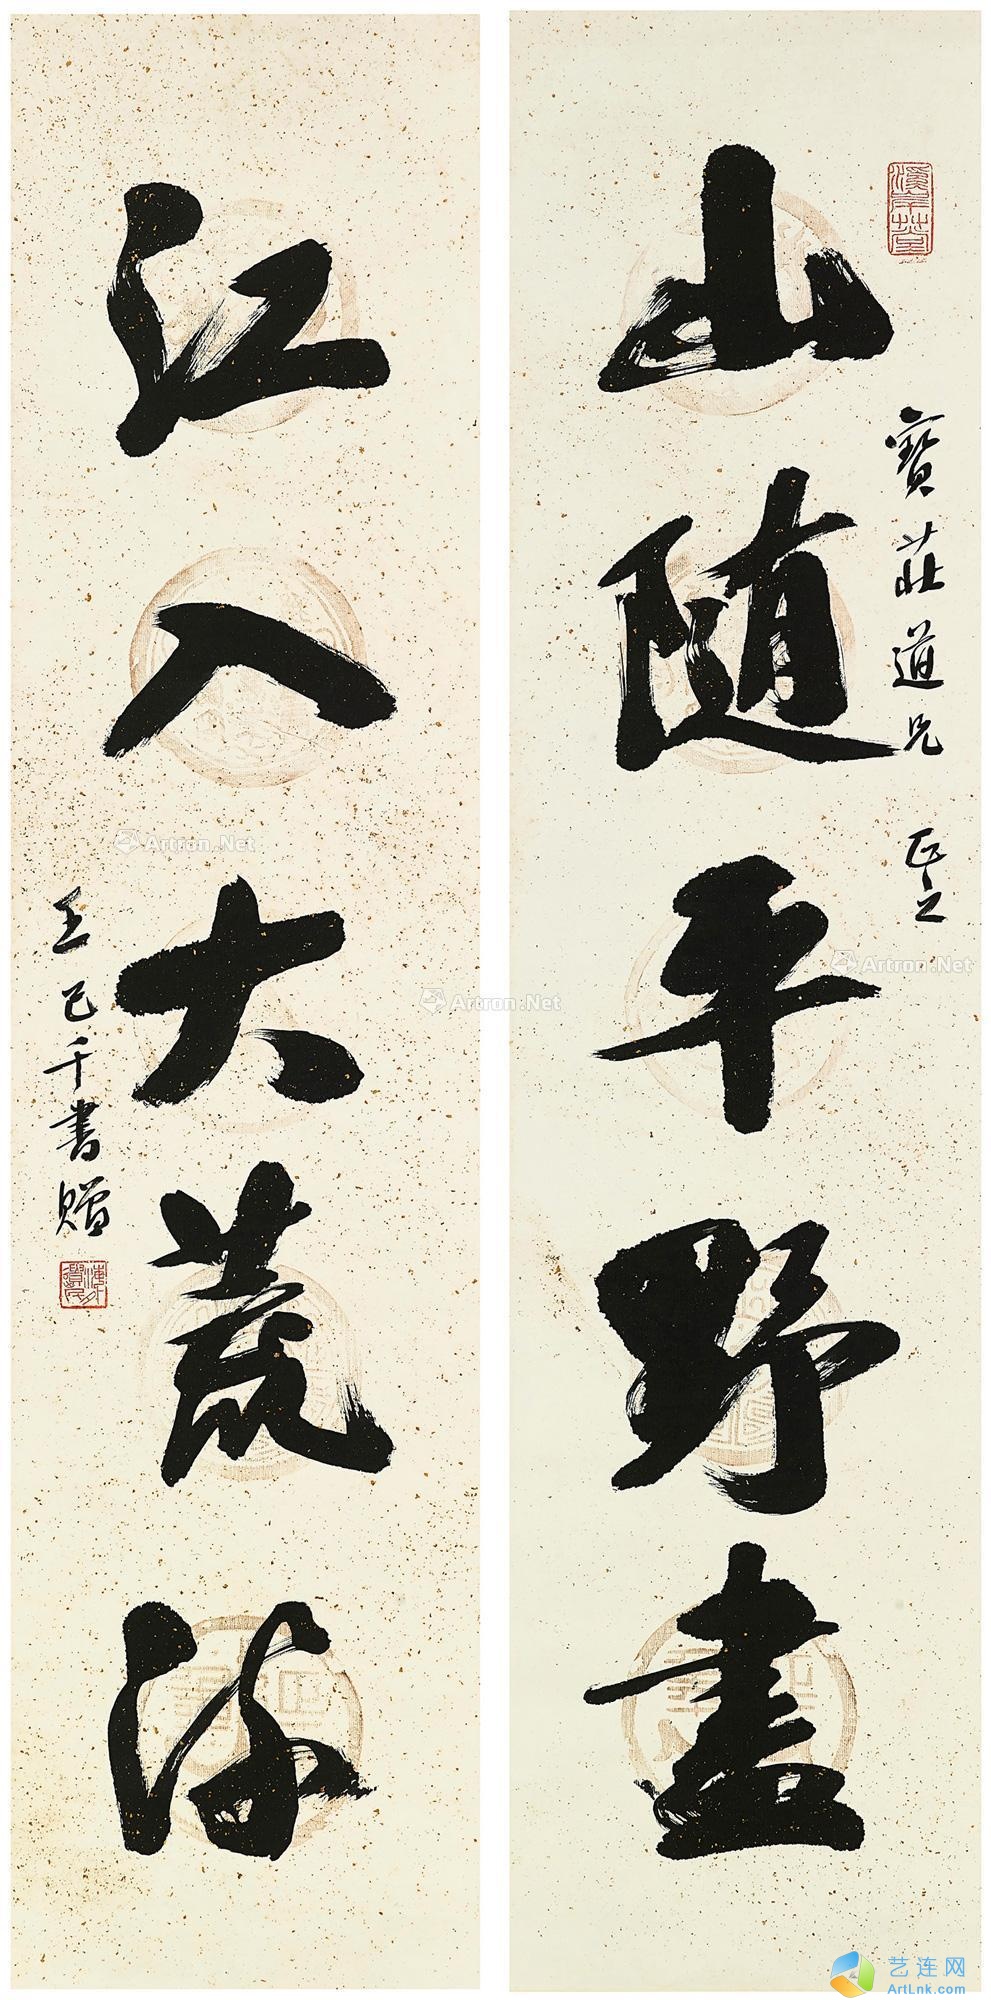 山随平野盡
寶莊道兄 正之
江入大荒流
王己千書贈
Artron.Net
Artron.Net
Artron.Net
艺连网
ArtLnk.com